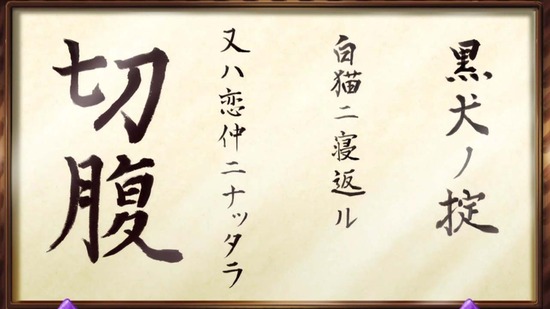 黒犬ノ掟
白猫ニ寝返ル
又ハ恋仲ニナッタラ
切腹